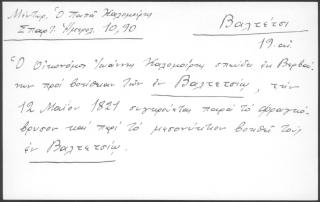 Μέντωρ. Ὁ Παπᾶ Καλομοίρης
Σπαρτ. Ἡμερολ. 10,90
Βαλτέτσι
19. αἰ.
Ὁ Οἰκονόμος Ἰωάννης Καλομοίρης σπεύδει ἐκ Βερβαί-
νων πρὸς βοήθειαν τῶν ἐν Βαλτετσίῳ, τὴν
12 Μαΐου 1821 συγκροτεῖται παρὰ τὸ Φραγκό-
βρυσον καὶ περὶ τὸ μεσονύκτιον βοηθεῖ τοὺς
ἐν Βαλτετσίῳ.